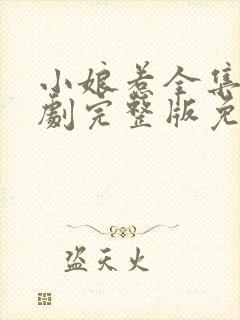 小娘惹全集
劇完整版免
盗天火